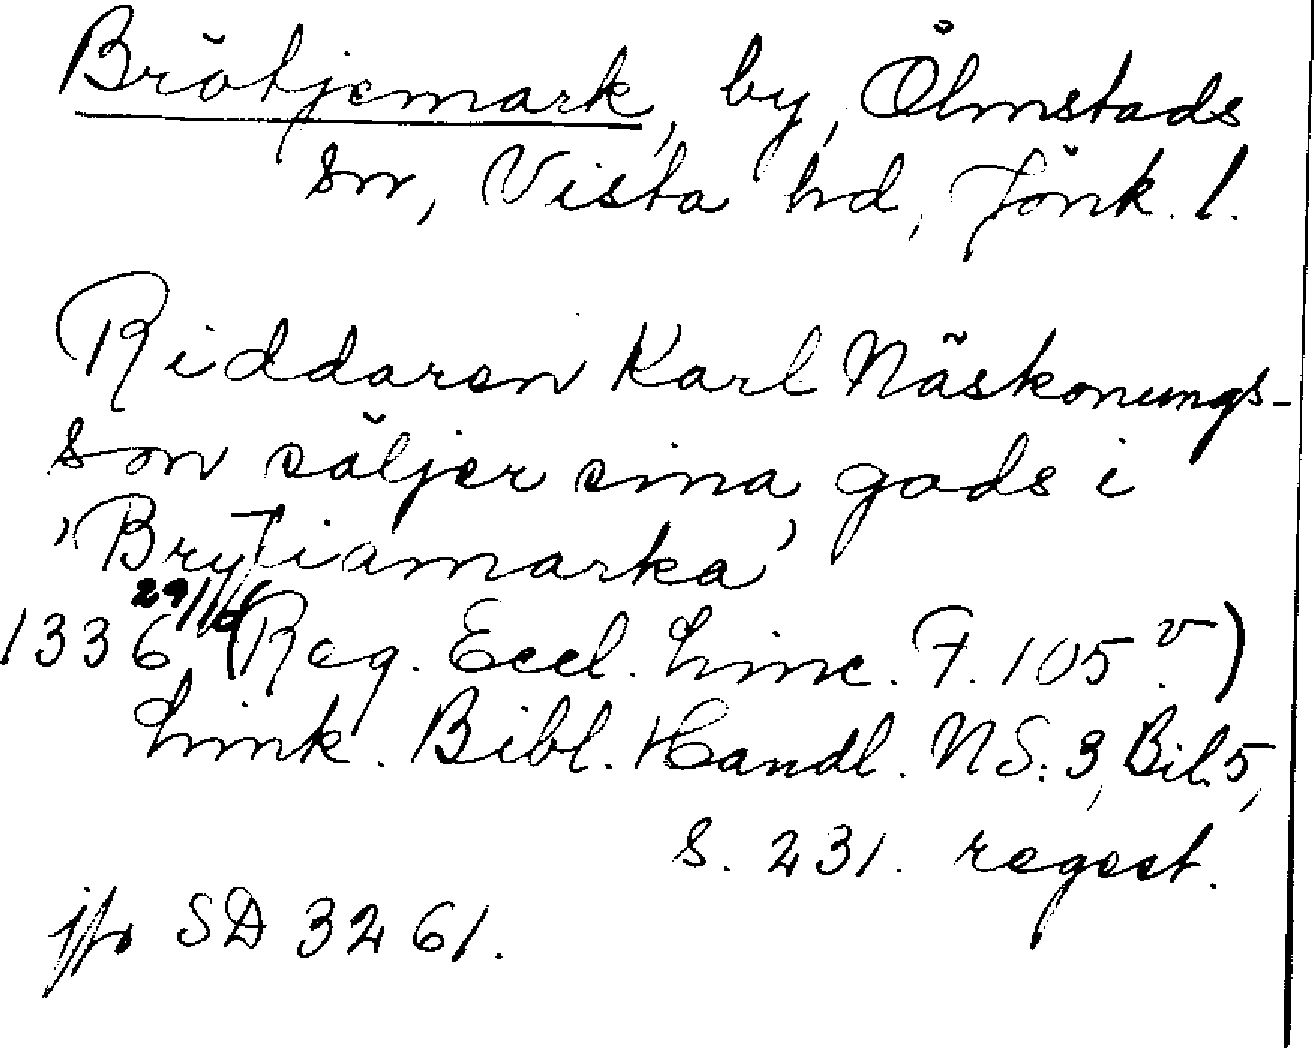 Brötjemark, by, Ölmstads
sn, Vista hd, Jönk. l.
Riddaren Karl Näskonungs-
son säljer sina gods i
'Brytiamarka'
1336 29/11 (Reg. Eccl. Linc. F. 105 v.)
Link. Bibl. Handl. NS: 3, Bil. 5,
s. 231. regest.
jfr SD 3261.